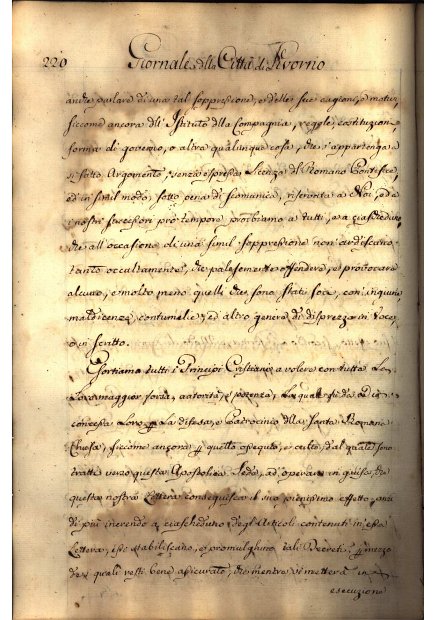 220 Giornale della Città di Livorno
andie parlare di una tal soppressione, e delle sue cagioni, e motivi,
siccome ancora dell' Istituto della Compagnia, regole, costituzioni
forma di governo, o altra qualunque cosa, che appartenga a
sì fatto Argomento, senza espressa licenza del Romano Pontefice,
ed in simil modo, sotto pena di scomunica, riservata a Noi, ed a
i nostri successori pro tempore proibiamo a tutti, ed a ciascheduno
che all' occasione di una simil soppressione non ardiscano
tanto occultamente, che palesemente offendere, e provocare
alcuno, e molto meno quelli che sono stati socj, con ingiurie
maldicenze, contumelie, ed altro genere di disprezzo in voce,
o in scritto.
Esortiamo tutti i Principi Cristiani a volere con tutta la
loro maggior forza, autorità, e potenza, la quale si da ad
concessa loro per la difesa, e Padrocinio della Santa Romana
Chiesa, siccome ancora per quello ossequio, e culto, dal quale sono
tratti verso questa Apostolica Sede, ad operare in guisa, che
questa nostra Lettera conseguisca il suo pienissimo effetto, anzi
di più inerendo a ciascheduno degl' Articoli contenuti in essa
Lettera, stabiliscano, e promulghino tali Decreti per mezzo
de i quali resti bene assicurato, che mentre si metterà in
esecuzione